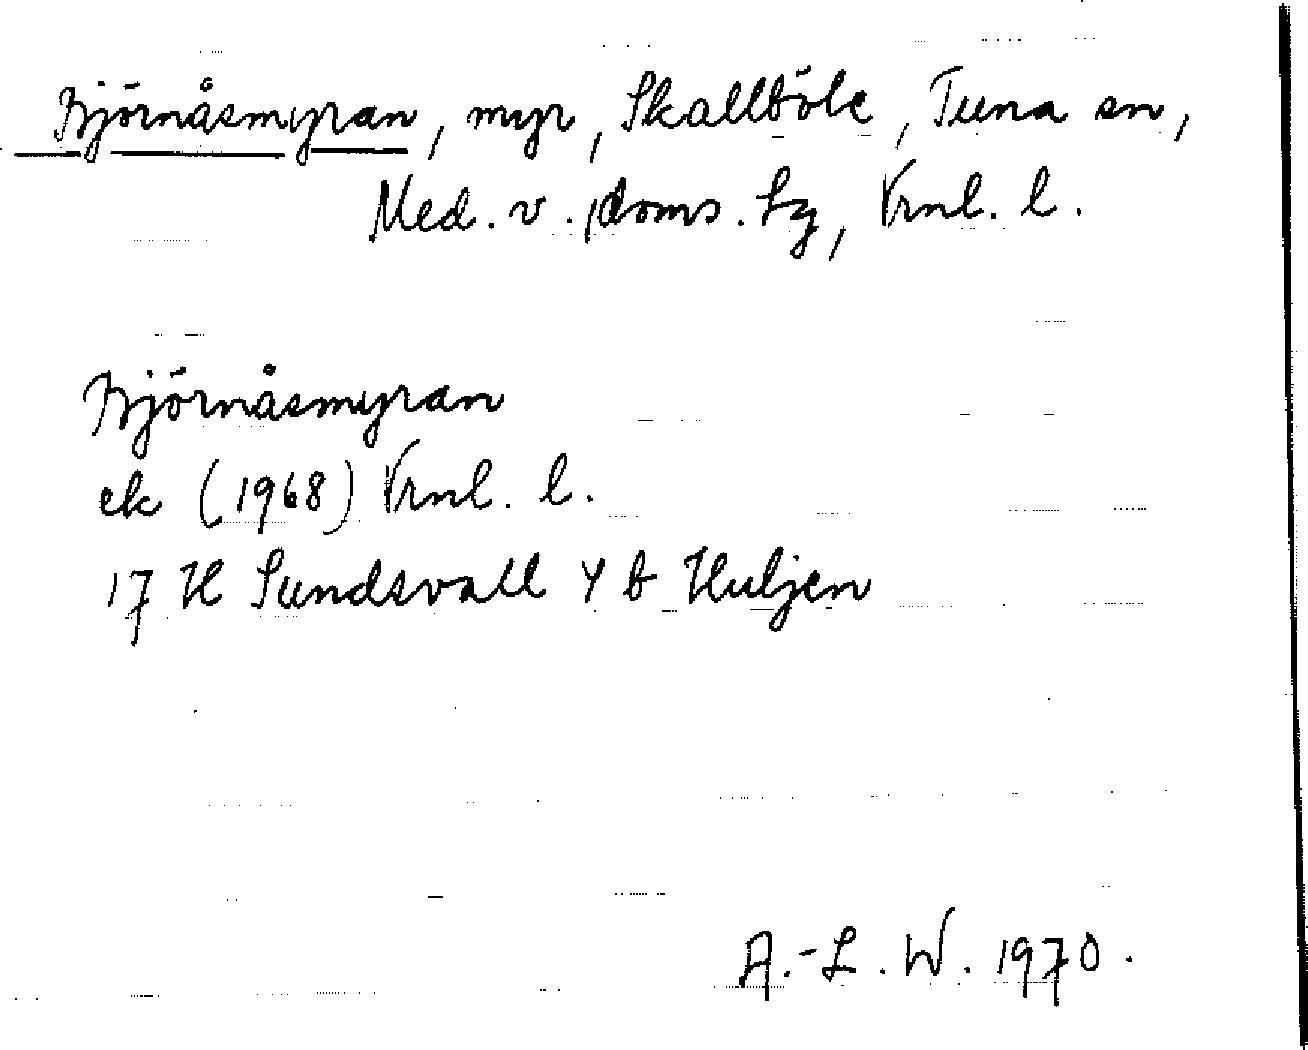 Björnåsmyran, myr, Skallböle, Tuna sn,
Med. v. doms. hg, Vrnl. l.
Björnåsmyran
ek (1968) Vrnl. l.
17 H Sundsvall Y b Huljen
A.-L. W. 1970.